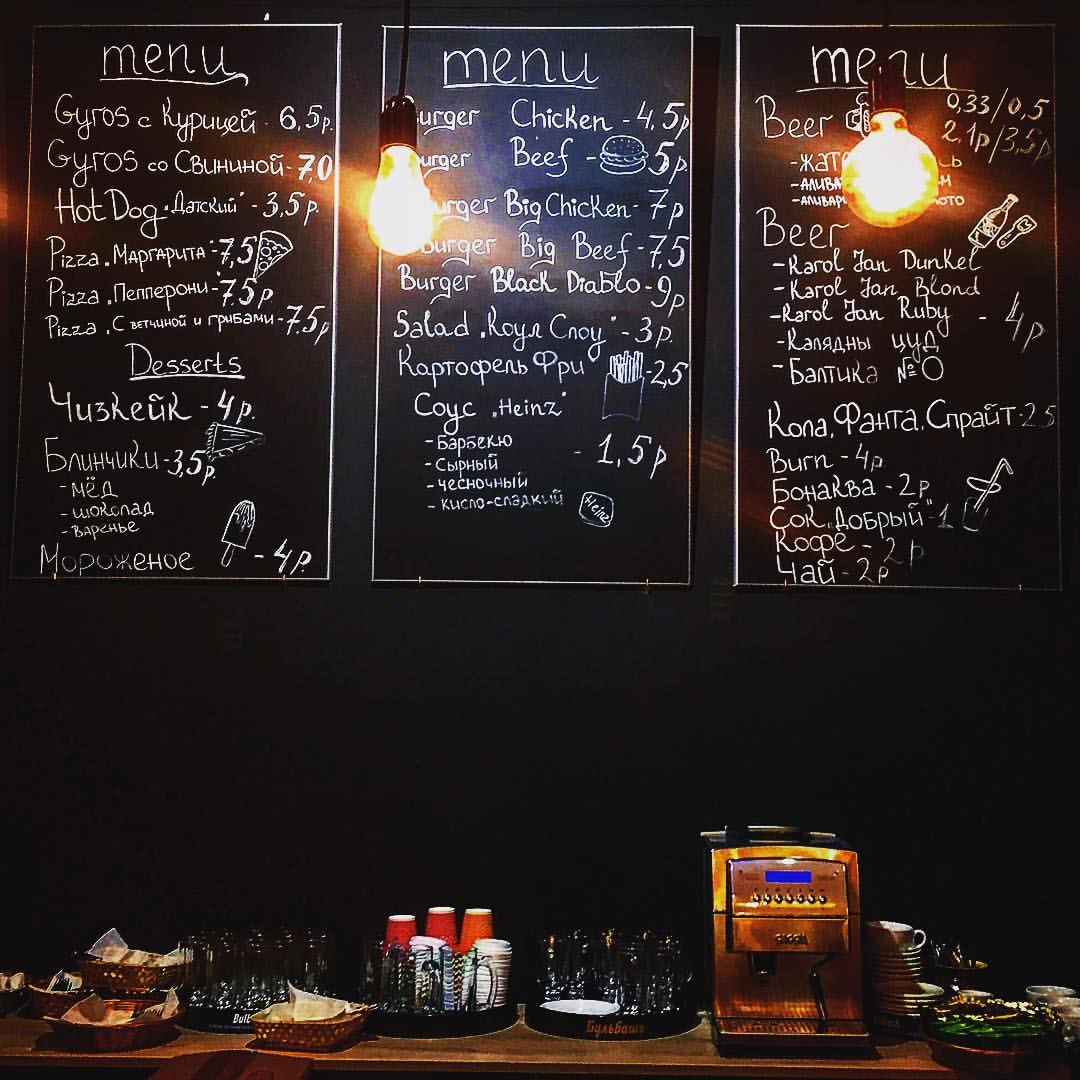 menu
Gyros с Курицей - 6,5р.
Gyros со Свининой - 7,0
Hot Dog "Датский" - 3,5р.
Pizza "Маргарита" - 7,5
Pizza "Пепперони" - 7.5р.
Pizza "С ветчиной и грибами - 7.5р
Desserts
Чизкейк - 4р.
Блинчики - 3,5р
- мёд
- шоколад
- варенье
Мороженое - 4р.
menu
Chicken - 4,5р
Beef - 5р.
Big Chicken - 7р
Burger Big Beef - 7,5
Burger Black Diablo - 9р
Salad "Коул Слоу" - 3р.
Картофель Фри - 2,5
Соус "Heinz"
- Барбекю
- Сырный
- чесночный
- кисло-сладкий
- 1,5р
Heinz
menu
Beer 0,33/0,5
2,1р/3,5р
Beer
- Karol Jan Dunkel
- Karol Jan Blond
- Karol Jan Ruby - 4р
- Калядны цуд
- Балтика №0
Кола, Фанта, Спрайт - 2.5
Burn - 4р.
Бонаква - 2р.
Сок "Добрый" - 1
Кофе - 2р
Чай - 2р
Бульбашъ